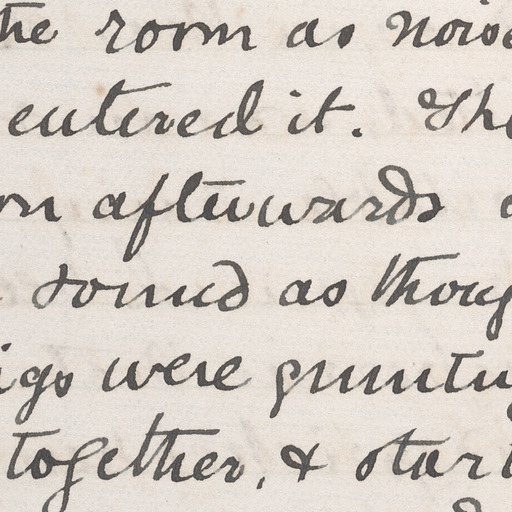 the room as noise
entered it. The
on afterwards a
sound as thoug
igs were grunting
together, & start